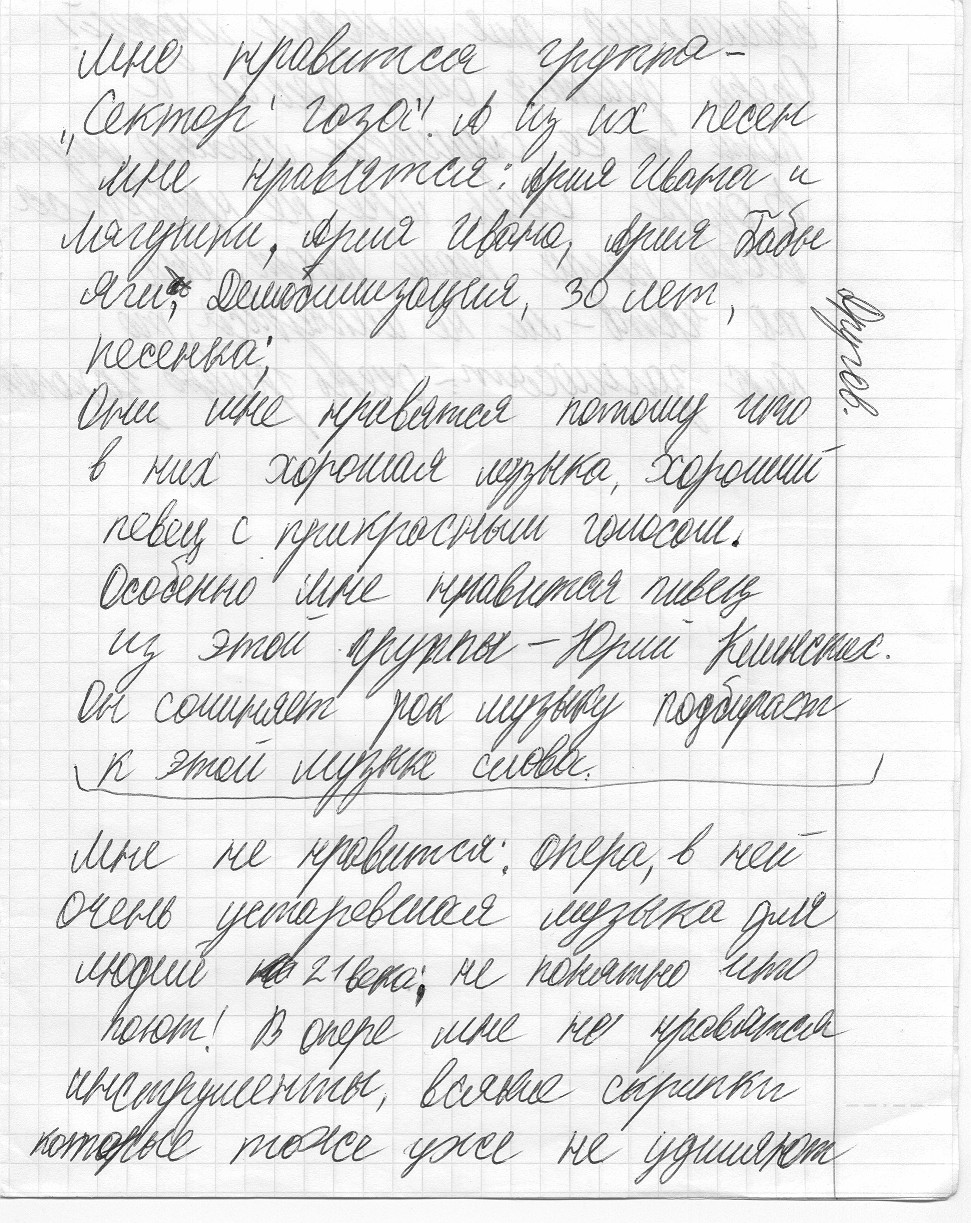 Мне нравится группа -
„Сектор газа"! А из их песен
мне нравятся: Ария Ивана и
лягушки, Ария Ивана, Ария Бабы
яги; Демобилизация, 30 лет,
песенка;
Они мне нравятся потому что
в них хорошая музыка, хороший
певец с прикрасным голосом.
Особенно мне нравится пивец
из этой группы – Юрий Клинских.
Он сочиняет рок музыку подбирает
к этой музыке слова.
Мне не нравится: опера, в ней
очень устаревшая музыка для
людий 21 века; не понятно что
поют! В опере мне не нравятся
инструменты, всякие скрипки
которые тоже уже не удивляют